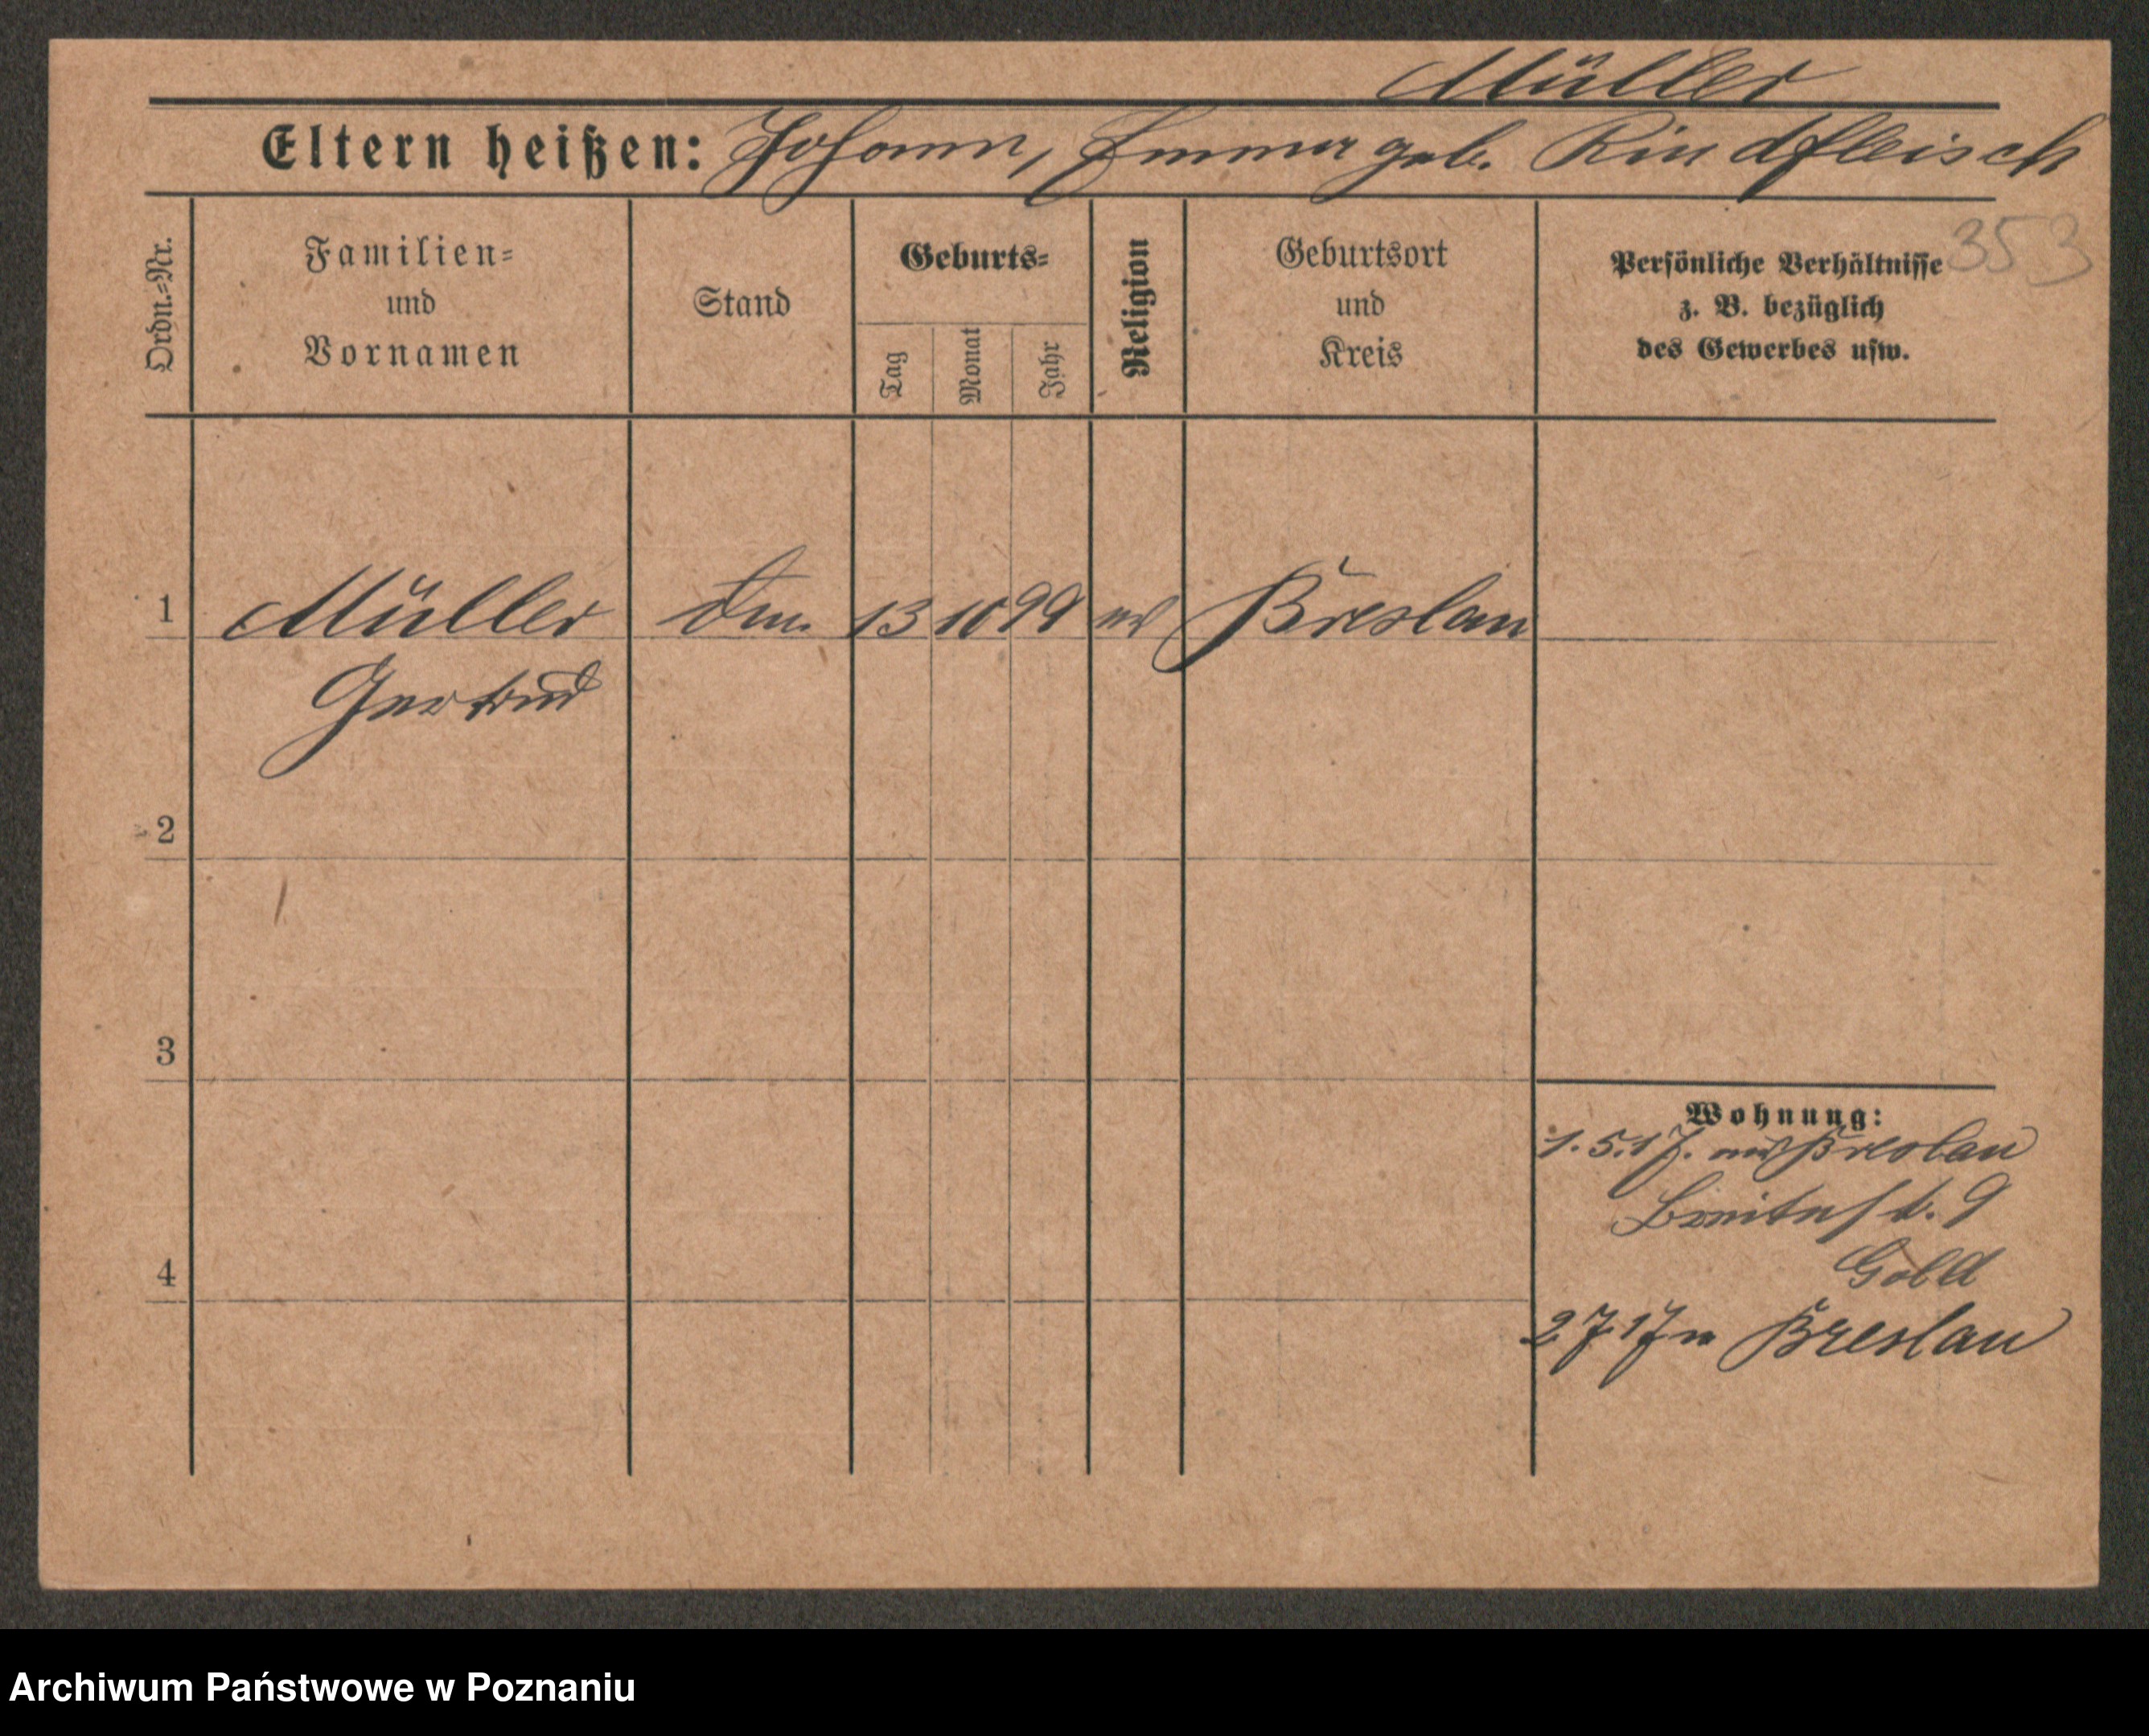 Müller
Eltern heißen: Johann, Emma geb. Rindfleisch
353
Ordn.-Nr.
Familien-
und
Vornamen
Stand
Geburts-
Tag
Monat
Jahr
Religion
Geburtsort
und
Kreis
Persönliche Verhältnisse
z. B. bezüglich
des Gewerbes usw.
1 Müller 13 10 99 ev Breslau
Gertrud
2
3
4
Wohnung:
1.5.17. Breslau
Breitestr. 9
2 7 17 n Breslau
Archiwum Państwowe w Poznaniu